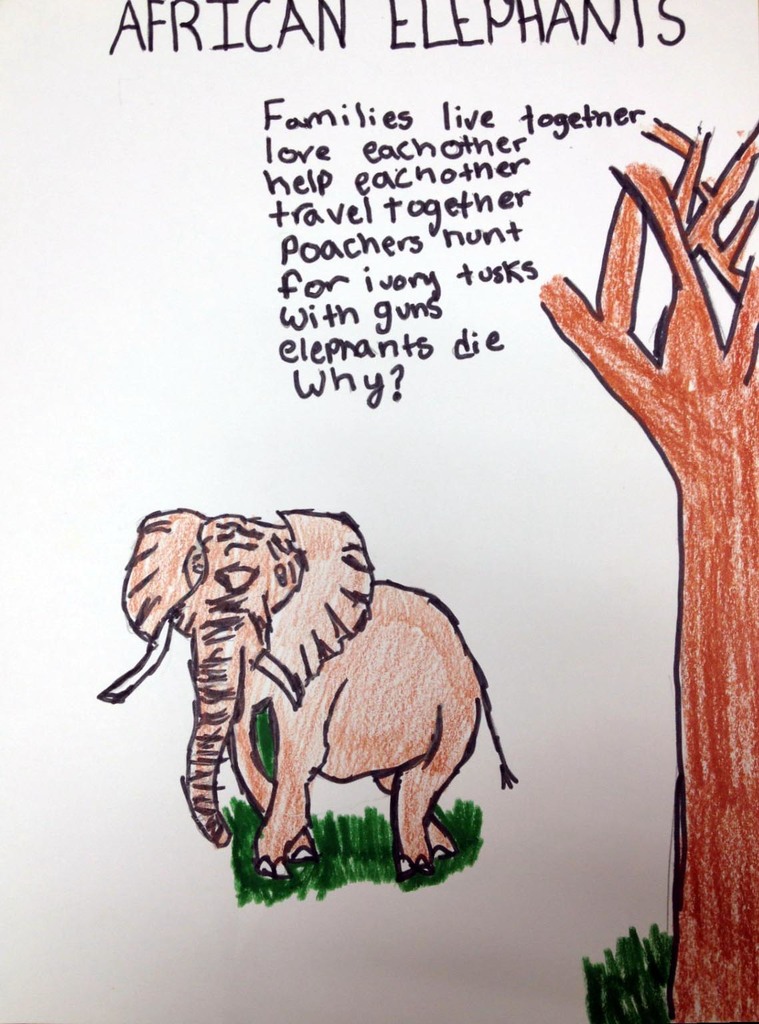 AFRICAN ELEPHANTS
Families live together
love eachother
help eachother
travel together
Poachers hunt
for ivory tusks
with guns
elephants die
Why?